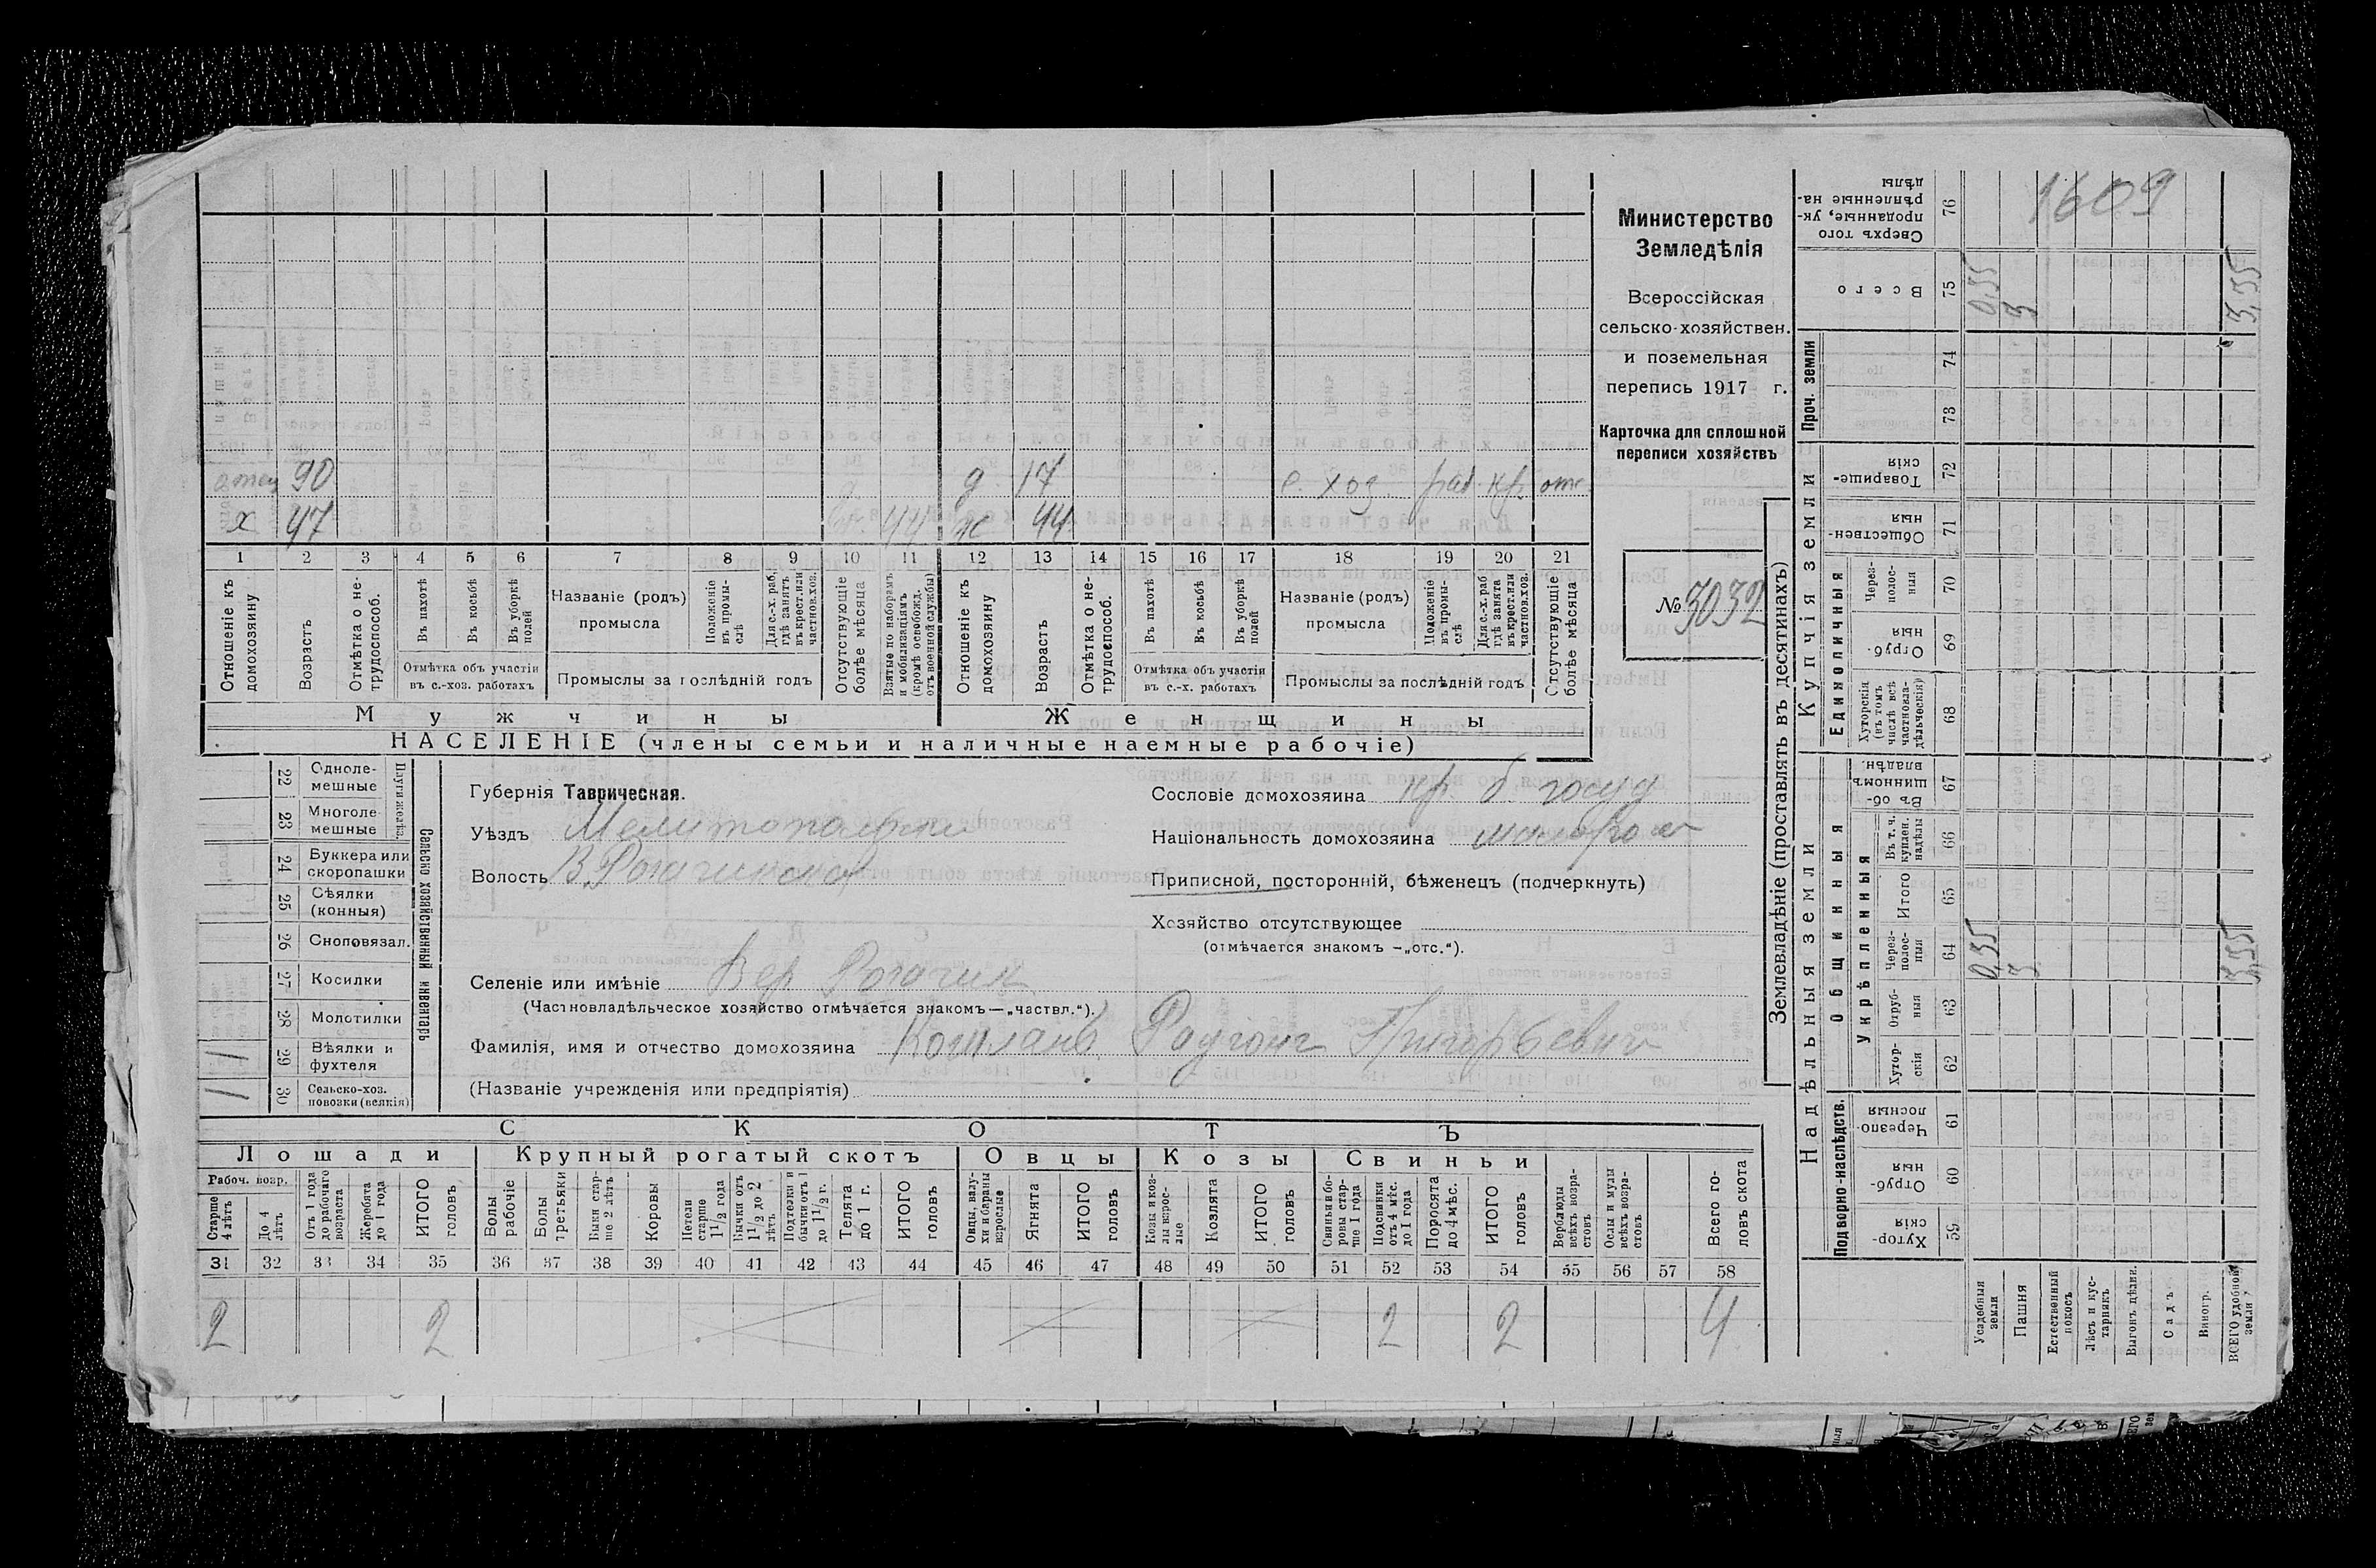 1609
Министерство
Земледѣлія
Всероссійская
сельско-хозяйствен.
и поземельная
перепись 1917 г.
Карточка для сплошной
переписи хозяйствъ
№ 3032
отец 90 д 17 с. хоз. раб. кр. отс.
х 47 ж 44
1 2 3 4 5 6 7 8 9 10 11 12 13 14 15 16 17 18 19 20 21
Отношеніе къ домохозяину
Возрастъ
Отмѣтка о не-трудоспособ.
Въ пахотѣ
Въ косьбѣ
Въ уборкѣ полей
Отмѣтка объ участіи
въ с.-хоз. работахъ
Названіе (родъ)
промысла
Положеніе въ промы-слѣ
Для с.-х. раб. гдѣ занятъ въ крест. или частнов. хоз.
Промыслы за послѣдній годъ
Отсутствующіе болѣе мѣсяца
Взятые по наборамъ и мобилизаціямъ (кромѣ освобожд. отъ военной службы)
Отношеніе къ домохозяину
Возрастъ
Отмѣтка о не-трудоспособ.
Въ пахотѣ
Въ косьбѣ
Въ уборкѣ полей
Отмѣтка объ участіи
въ с.-х. работахъ
Названіе (родъ)
промысла
Положеніе въ промы-слѣ
Для с.-х. раб гдѣ занята въ крест. или частнов. хоз.
Промыслы за послѣдній годъ
Отсутствующіе болѣе мѣсяца
Мужчины Женщины
НАСЕЛЕНІЕ (члены семьи и наличные наемные рабочіе)
Сельско хозяйственный инвентарь
Плуги желѣз.
22 Одноле-мешные
23 Многоле-мешные
24 Буккера или скоропашки
25 Сѣялки (конныя)
26 Сноповязал.
27 Косилки
28 Молотилки
29 Вѣялки и фухтеля 1
30 Сельско-хоз. повозки (всякія) 1
Губернія Таврическая.
Уѣздъ Мелитопольскій
Волость В. Рогачикская
Сословіе домохозяина кр. б. госуд
Національность домохозяина малорос
Приписной, посторонній, бѣженец (подчеркнуть)
Хозяйство отсутствующее
(отмѣчается знакомъ —„отс.“).
Селеніе или имѣніе Вер Рогачик
(Частновладѣльческое хозяйство отмѣчается знакомъ—„частвл.“).
Фамилія, имя и отчество домохозяина Григорьевич
(Названіе учрежденія или предпріятія)
СКОТЪ
Лошади Крупный рогатый скотъ Овцы Козы Свиньи
Рабоч. возр.
Старше 4 лѣтъ
До 4 лѣтъ
Отъ 1 года до рабочаго возраста
Жеребята до 1 года
ИТОГО головъ
Волы рабочіе
Волы третьяки
Быки стар-ше 2 лѣтъ
Коровы
Нетели старше 1 1/2 года
Бычки отъ 1 1/2 до 2 лѣтъ
Подтелки и бычки отъ 1 до 1 1/2 г.
Телята до 1 г.
ИТОГО головъ
Овцы, валу-хи и бараны взрослые
Ягнята
ИТОГО головъ
Козы и коз-лы взрос-лые
Козлята
ИТОГО головъ
Свиньи и бо-ровы стар-ше 1 года
Подсвинки отъ 4 мѣс. до 1 года
Поросята до 4 мѣс.
ИТОГО головъ
Верблюды всѣхъ возра-стовъ
Ослы и мулы всѣхъ возра-стовъ
Всего го-ловъ скота
31 32 33 34 35 36 37 38 39 40 41 42 43 44 45 46 47 48 49 50 51 52 53 54 55 56 57 58
2 2 2 2 4
Землевладѣніе (проставлять въ десятинахъ)
Надѣльныя земли Купчія земли Проч. земли
Подворно-наслѣдств. Общинныя Единоличныя
Укрѣпленныя
Хутор-скія 59
Отруб-ныя 60
Черезпо-лосныя 61
Хутор-скія 62
Отруб-ныя 63
Через-полос-ныя 64
Итого 65
Въ т. ч. куплен. надѣлы 66
Въ об-щинномъ владѣн. 67
Хуторскія (въ томъ числѣ всѣ частновла-дѣльческія) 68
Отруб-ныя 69
Через-полос-ныя 70
Обществен-ныя 71
Товарище-скія 72
73
74
Всего 75
Сверхъ того проданные, ук-рѣпленные на-дѣлы 76
Усадебныя земли 0,55 0,55
Пашня 3 3
Естественный покосъ
Лѣсъ и кус-тарникъ
Выгонъ цѣлин.
Садъ
Виногр.
ВСЕГО удобной земли 3,55 3,55